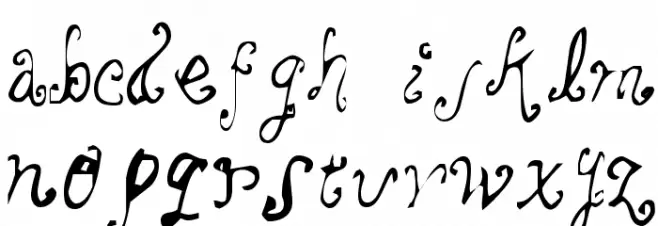 abcdefgh ijklmn
nopqrstuvwxyz